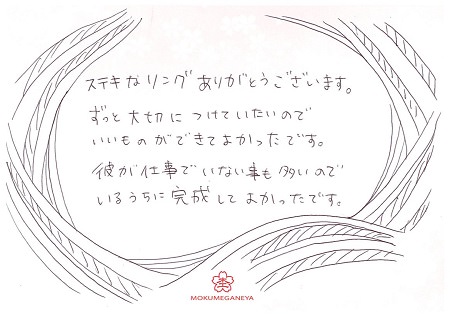 ステキなリングありがとうございます。
ずっと大切につけていたいので
いいものができてよかったです。
彼が仕事でいない事も多いので
いるうちに完成してよかったです。
MOKUMEGANEYA